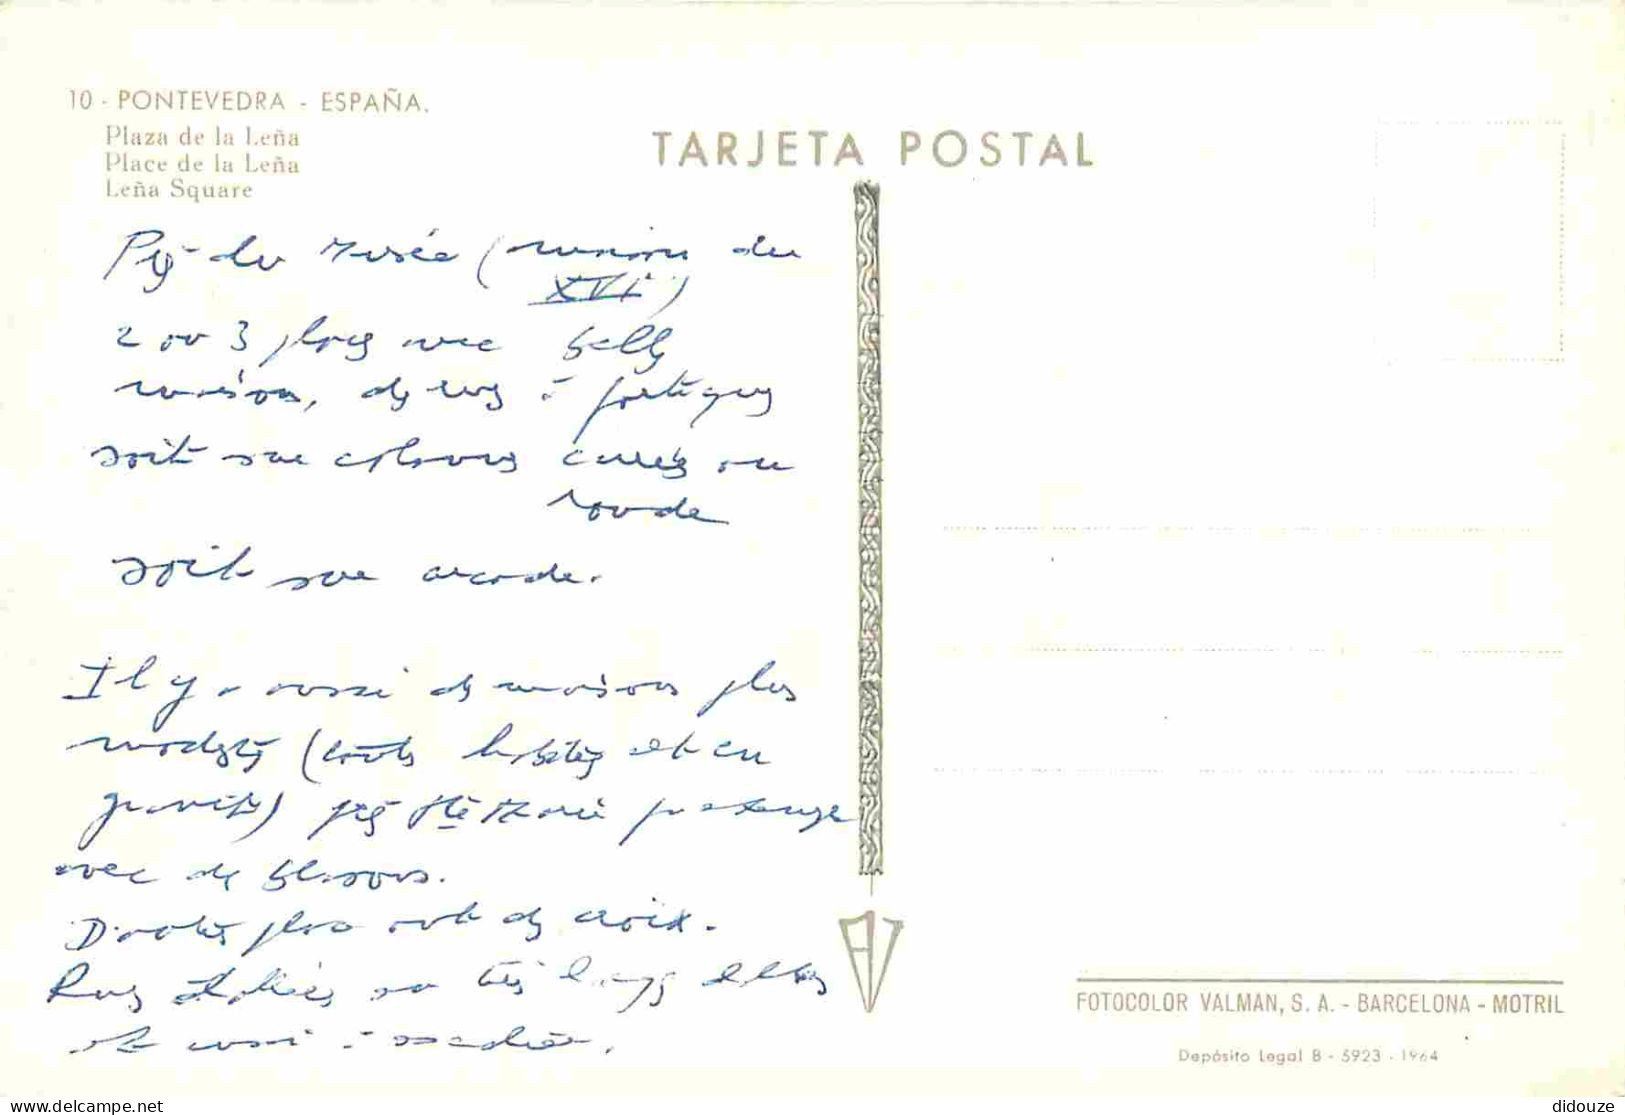 10 - PONTEVEDRA - ESPAÑA.
Plaza de la Leña
Place de la Leña
Leña Square
TARJETA POSTAL
du Musée (maison du
XVIè)
2 ou 3 places avec belles
maisons, des rues à portiques
soit sur colonnes carrées ou
rondes
soit sur arcades.
Il y a aussi des maisons plus
modestes (toutes habitées et en
granite) près Ste Marie
avec des blasons.
D'autres places ont des croix.
Rues
et aussi à
FOTOCOLOR VALMAN, S. A. - BARCELONA - MOTRIL
Depósito Legal B - 5923 - 1964
delcampe.net
didouze